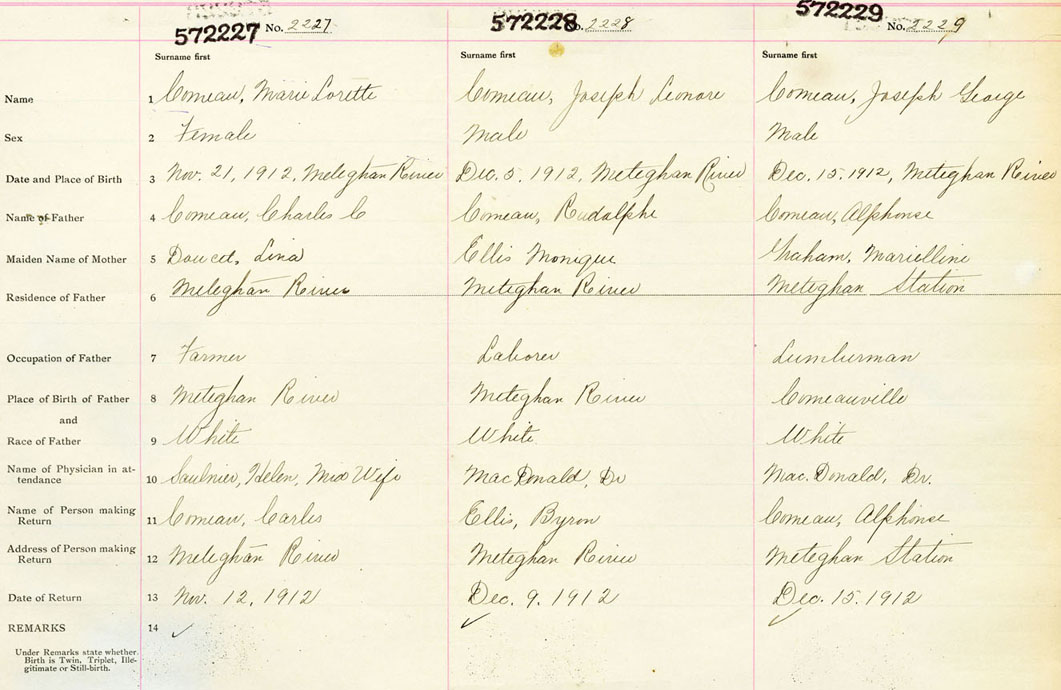 572227 No. 2227 572228 No. 2228 572229 No. 2229
Surname first Surname first Surname first
Name 1 Comeau, Marie Lorette Comeau, Joseph Leonore Comeau, Joseph George
Sex 2 Female Male Male
Date and Place of Birth 3 Nov. 21, 1912, Meteghan River Dec. 5. 1912, Meteghan River Dec. 15. 1912, Meteghan River
Name of Father 4 Comeau, Charles C Comeau, Rudalphe Comeau, Alphonse
Maiden Name of Mother 5 Doucet, Lina Ellis Monique Graham, Marielline
Residence of Father 6 Meteghan River Meteghan River Meteghan Station
Occupation of Father 7 Farmer Laborer Lumberman
Place of Birth of Father 8 Meteghan River Meteghan River Comeauville
and
Race of Father 9 White White White
Name of Physician in at-
tendance 10 Saulnier, Helen, Mid Wife MacDonald, Dr Mac. Donald, Dr.
Name of Person making
Return 11 Comeau, Carles Ellis, Byron Comeau, Alphonse
Address of Person making
Return 12 Meteghan River Meteghan River Meteghan Station
Date of Return 13 Nov. 12, 1912 Dec. 9. 1912 Dec. 15. 1912
REMARKS 14 ✓ ✓ ✓
Under Remarks state whether
Birth is Twin, Triplet, Ille-
gitimate or Still-birth.